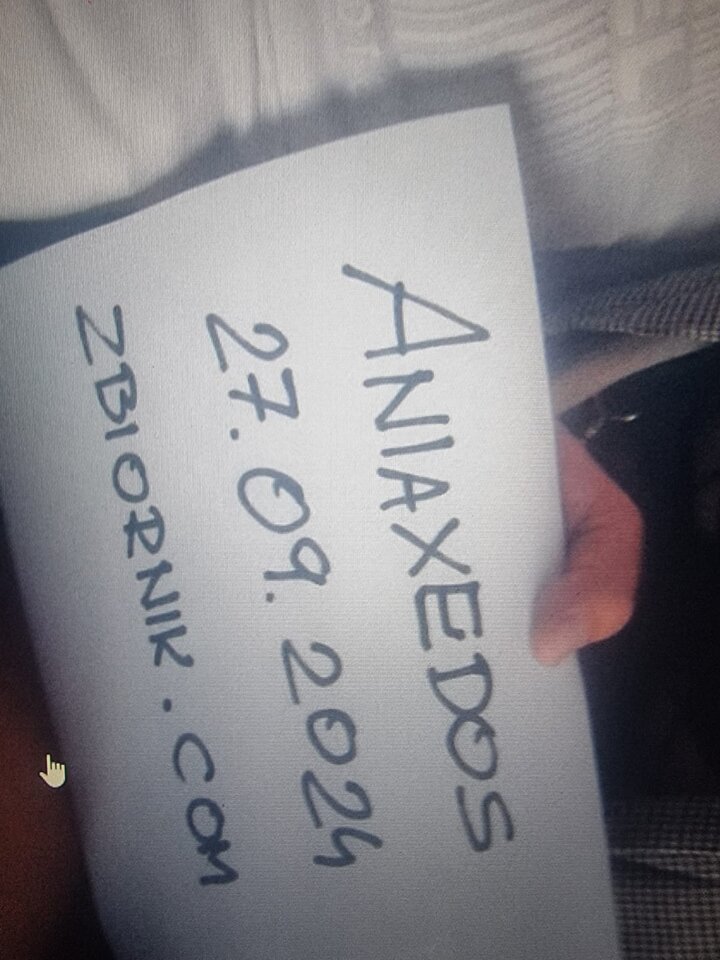 ANIAXEDOS
27.09.2024
ZBIORNIK.COM